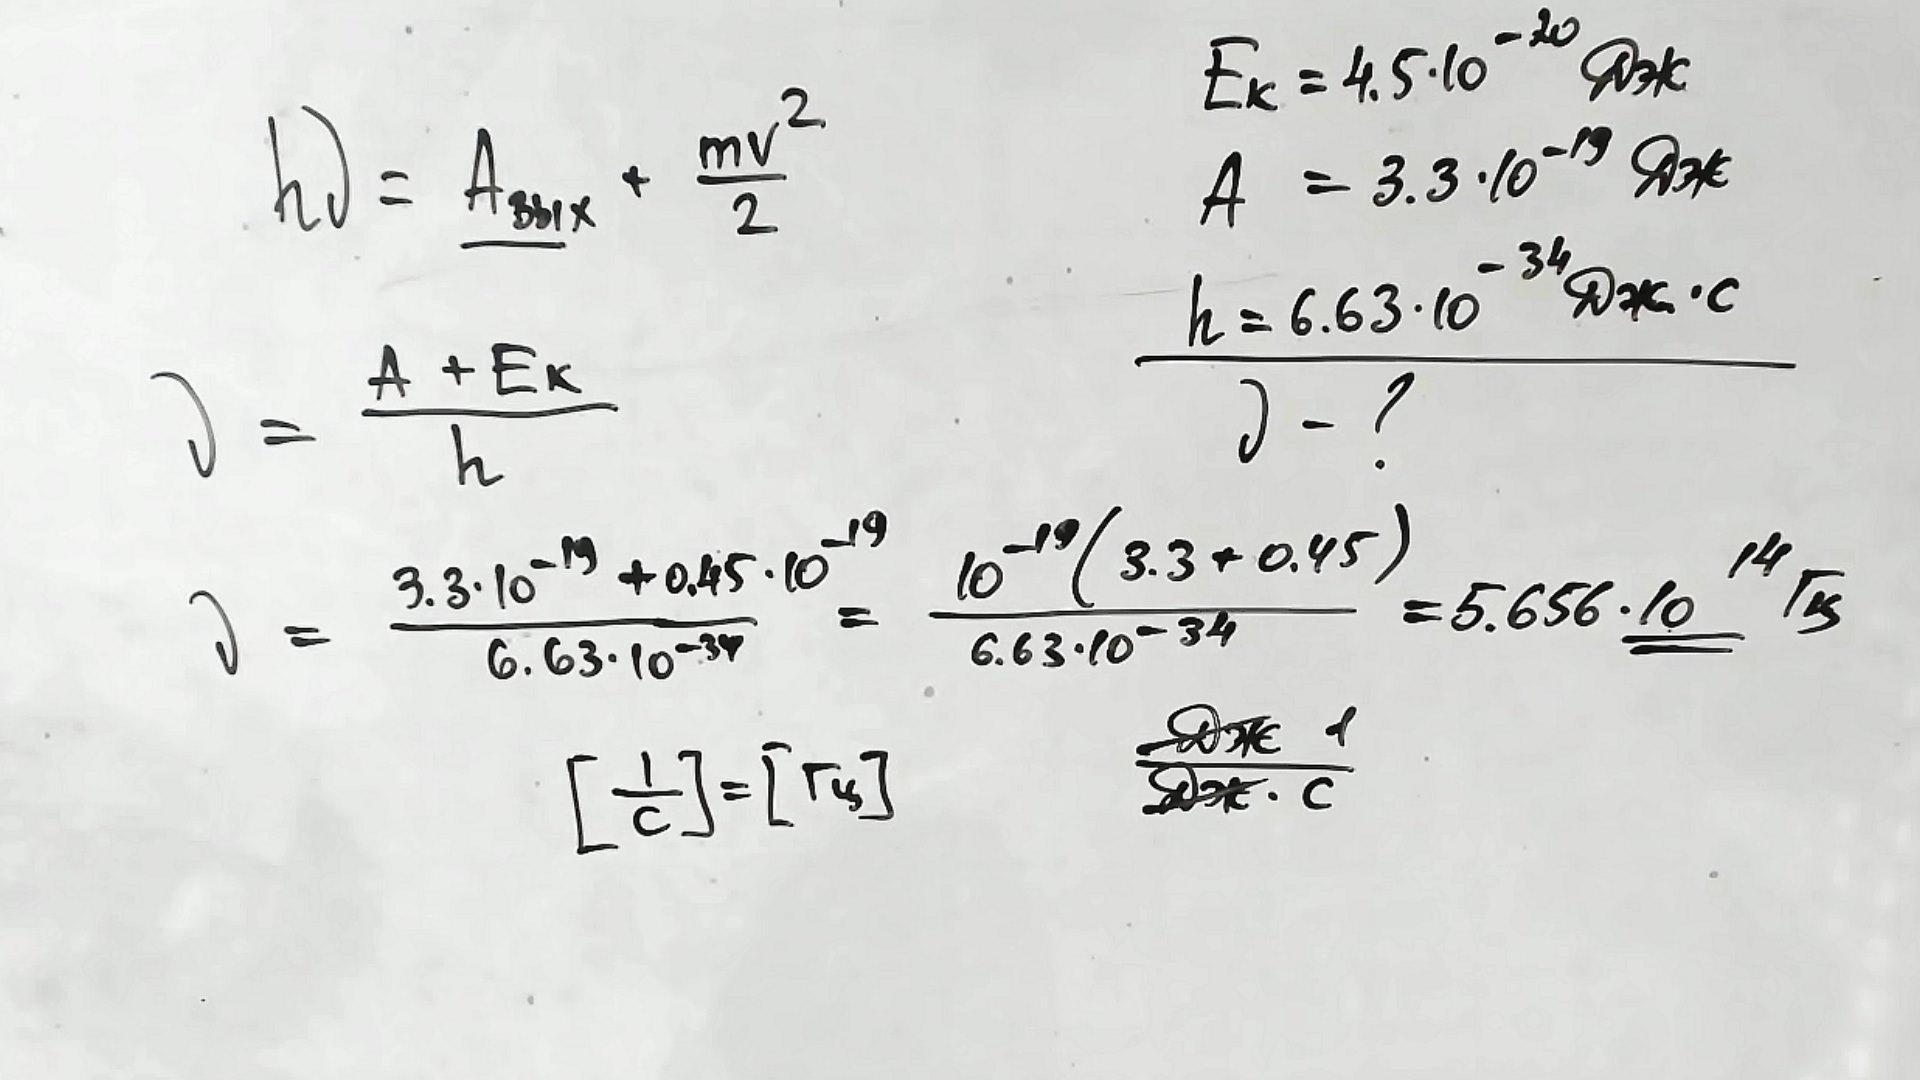 hν = Aвых + mv²/2
Eк = 4.5·10⁻²⁰ Дж
A = 3.3·10⁻¹⁹ Дж
h = 6.63·10⁻³⁴ Дж·с
ν - ?
ν = (A + Eк)/h
ν = (3.3·10⁻¹⁹ + 0.45·10⁻¹⁹)/(6.63·10⁻³⁴) = 10⁻¹⁹(3.3 + 0.45)/(6.63·10⁻³⁴) = 5.656·10¹⁴ Гц
[1/с] = [Гц]
Дж 1/Дж·с